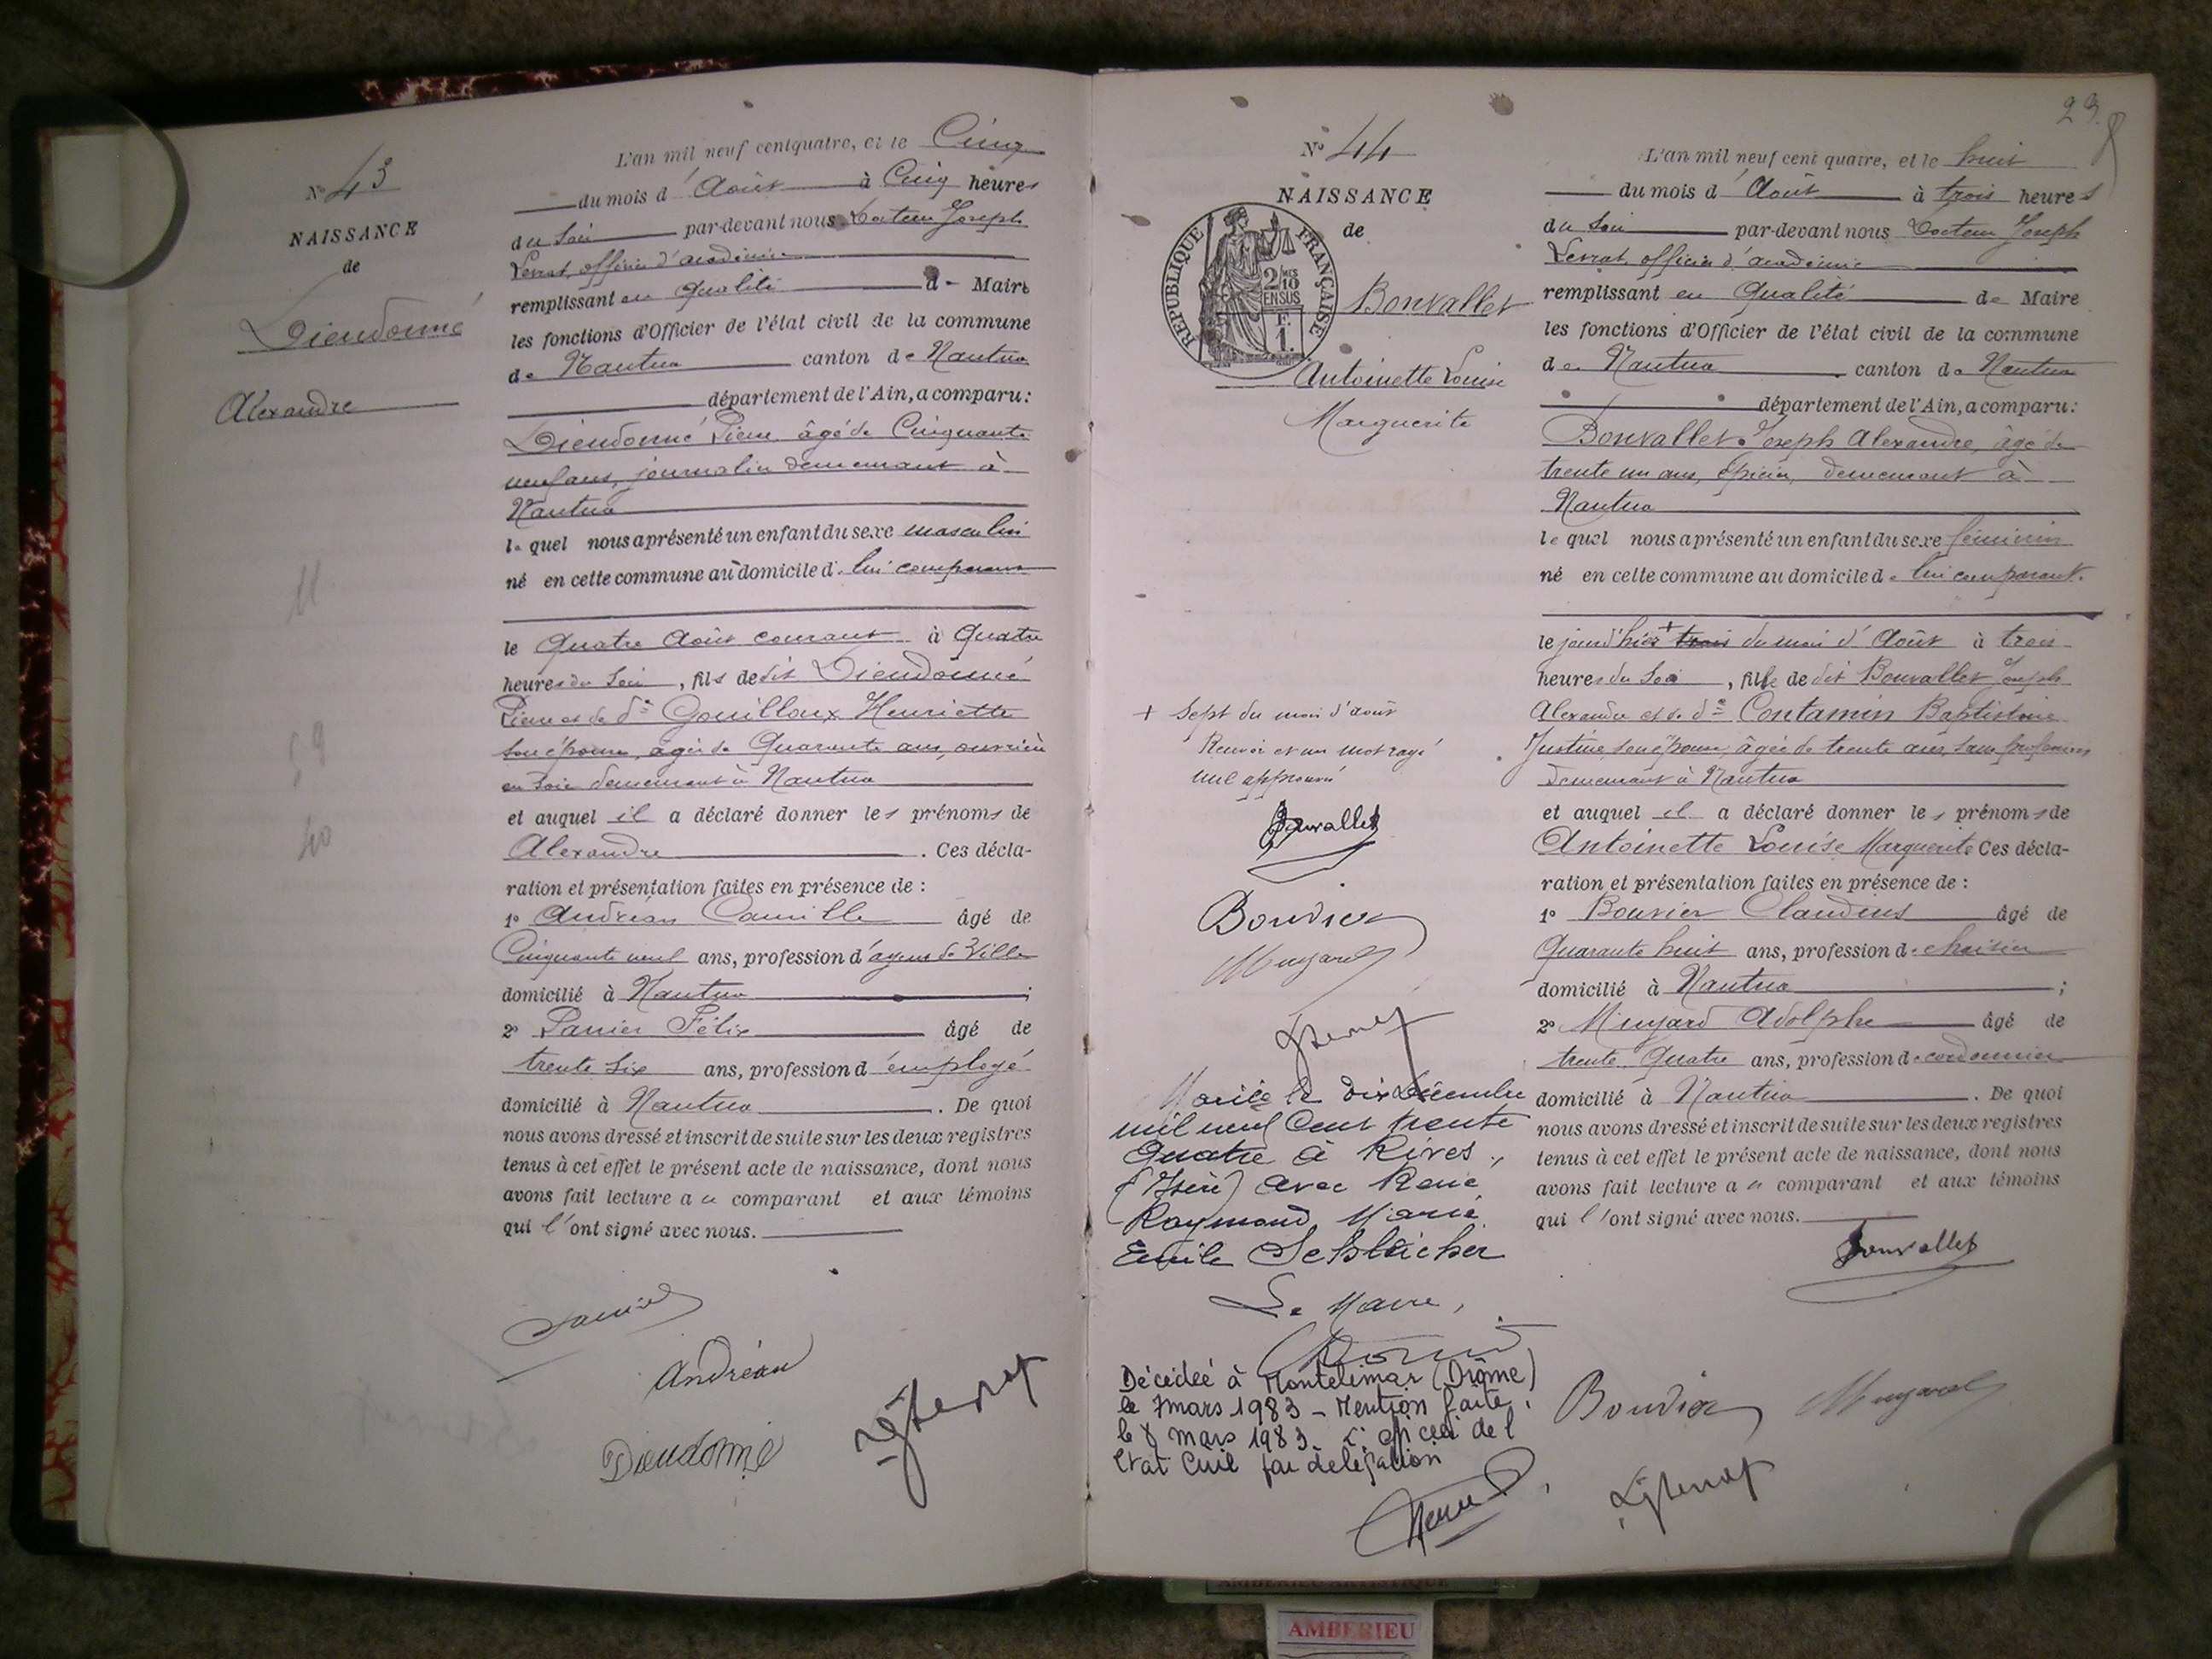 N° 43
NAISSANCE
de
Dieudonné
Alexandre
11
59
40
L'an mil neuf cent quatre, et le Cinq
du mois d'Août à Cinq heures
du Soir par-devant nous Docteur Joseph
Levrat officier d'académie
remplissant en qualité de Maire
les fonctions d'Officier de l'état civil de la commune
de Nantua canton de Nantua
département de l'Ain, a comparu:
Dieudonné Pierre âgé de Cinquante
neuf ans, journalier demeurant à
Nantua
lequel nous a présenté un enfant du sexe masculin
né en cette commune au domicile de lui comparant
le Quatre Août courant à Quatre
heures du Soir, fils de dit Dieudonné
Pierre et de de Gouilloux Henriette
son épouse, âgée de Quarante ans, ouvrière
en soie demeurant à Nantua
et auquel il a déclaré donner les prénoms de
Alexandre. Ces décla-
ration et présentation faites en présence de :
1° Andréan Camille âgé de
Cinquante neuf ans, profession d'agent de Ville
domicilié à Nantua;
2° Panier Félix âgé de
trente six ans, profession d'employé
domicilié à Nantua. De quoi
nous avons dressé et inscrit de suite sur les deux registres
tenus à cet effet le présent acte de naissance, dont nous
avons fait lecture au comparant et aux témoins
qui l'ont signé avec nous.
Panier
Andréan
Dieudonné
23
N° 44
NAISSANCE
de
REPUBLIQUE FRANÇAISE
2/10
EN SUS
F.
1.
Bonvallet
Antoinette Louise
Marguerite
L'an mil neuf cent quatre, et le huit
du mois d'Août à trois heures
du Soir par-devant nous Docteur Joseph
Levrat officier d'académie
remplissant en Qualité de Maire
les fonctions d'Officier de l'état civil de la commune
de Nantua canton de Nantua
département de l'Ain, a comparu:
Bonvallet Joseph Alexandre, âgé de
trente un ans, épicier, demeurant à
Nantua
lequel nous a présenté un enfant du sexe féminin
né en cette commune au domicile de lui comparant.
le jour d'hier + trois du mois d'Août à trois
heures du Soir, fille de dit Bonvallet Joseph
Alexandre et de de Contamin Baptistine
Justine, son épouse, âgée de trente ans, sans profession
demeurant à Nantua
et auquel il a déclaré donner les prénoms de
Antoinette Louise Marguerite Ces décla-
ration et présentation faites en présence de :
1° Bouvier Claudius âgé de
Quarante huit ans, profession de chaisier
domicilié à Nantua;
2° Muyard Adolphe âgé de
trente Quatre ans, profession de cordonnier
domicilié à Nantua. De quoi
nous avons dressé et inscrit de suite sur les deux registres
tenus à cet effet le présent acte de naissance, dont nous
avons fait lecture au comparant et aux témoins
qui l'ont signé avec nous.
Bonvallet
Bouvier
Muyard
+ Sept du mois d'août
Renvoi et un mot rayé
nul approuvé
Bonvallet
Bouvier
Muyard
Mariée le dix Décembre
mil neuf Cent trente
Quatre à Rives
(Isère) avec René
Raymond Marie
Emile Schleicher
Le Maire,
Décédée à Montelimar (Drôme)
le 7 mars 1983 - Mention faite,
le 8 mars 1983. L'officier de l'
Etat Civil par délégation
AMBERIEU ARTISTIQUE
AMBERIEU